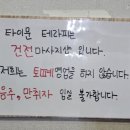 타이욘 테라피는
건전 마사지샵 입니다.
저희는 퇴폐영업을 하지 않습니다.
음주, 만취자 입실 불가합니다.